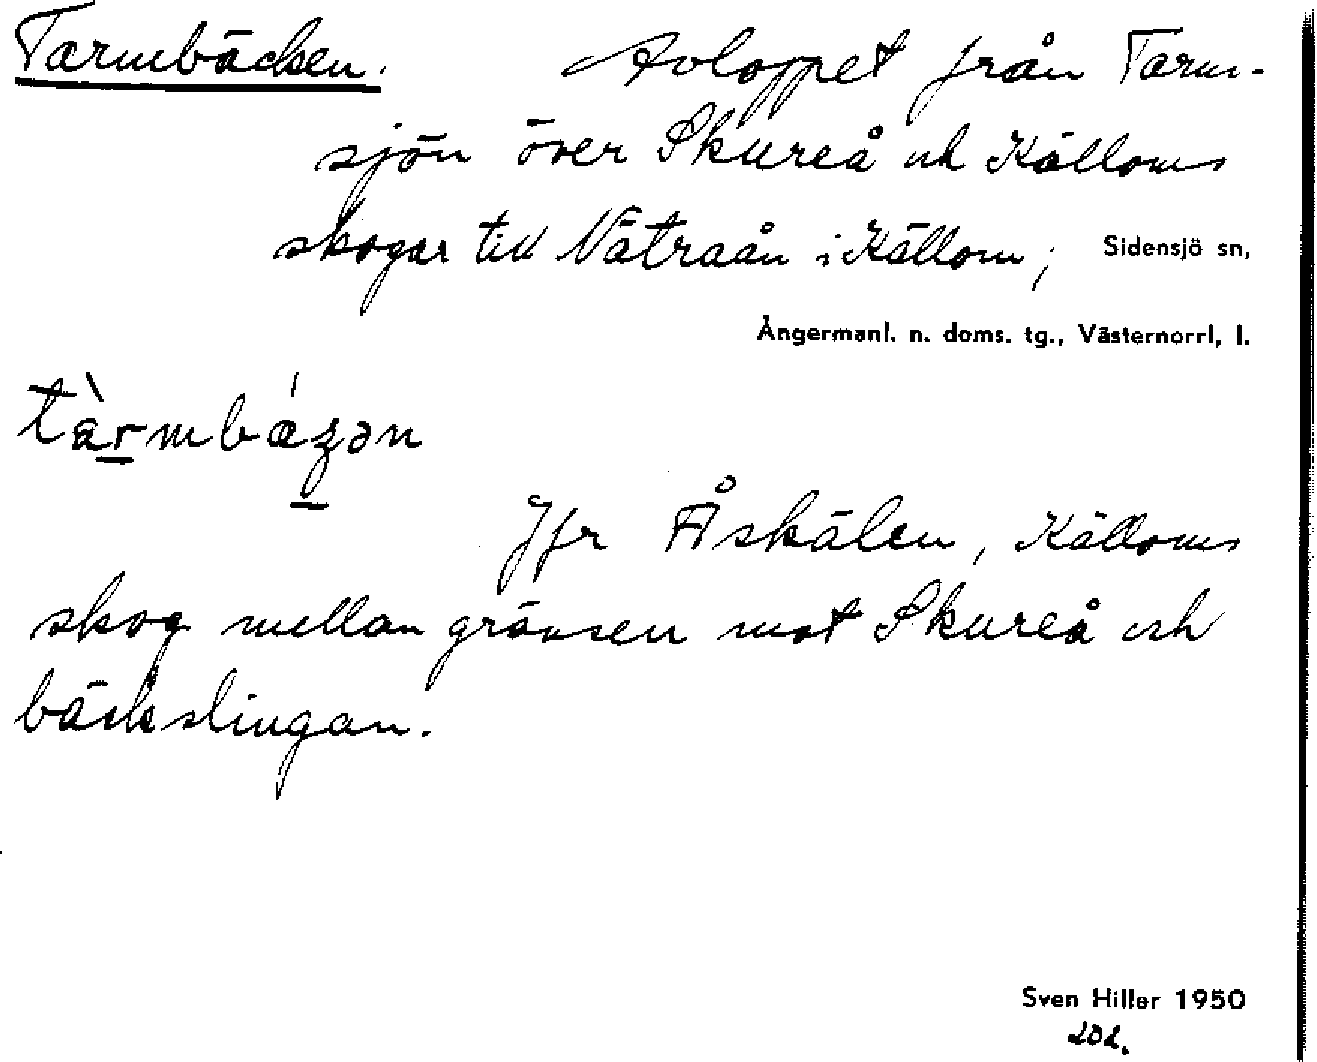 Tarmbäcken. Avloppet från Tarm-
sjön över Skureå och Källoms
skogar till Nätraån i Källom, Sidensjö sn,
Ångermanl. n. doms. tg., Västernorrl. l.
tàrmbázən
Jfr Åskälen, Källoms
skog mellan gränsen mot Skureå och
bäckslingan.
Sven Hiller 1950